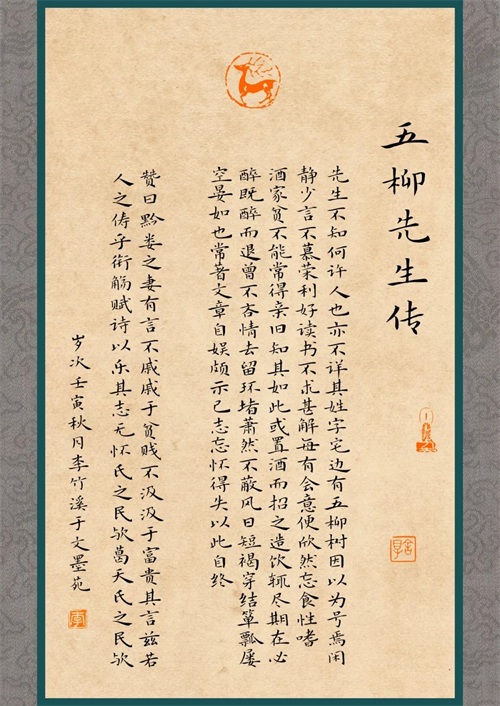 五柳先生传
先生不知何许人也亦不详其姓字宅边有五柳树因以为号焉闲
静少言不慕荣利好读书不求甚解每有会意便欣然忘食性嗜
酒家贫不能常得亲旧知其如此或置酒而招之造饮辄尽期在必
醉既醉而退曾不吝情去留环堵萧然不蔽风日短褐穿结箪瓢屡
空晏如也常著文章自娱颇示己志忘怀得失以此自终
赞曰黔娄之妻有言不戚戚于贫贱不汲汲于富贵其言兹若
人之俦乎衔觞赋诗以乐其志无怀氏之民欤葛天氏之民欤
岁次壬寅秋月李竹溪于文墨苑